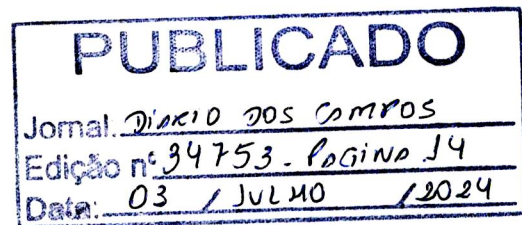 PUBLICADO
Jornal: DIARIO DOS CAMPOS
Edição nº 34753 - PAGINA 14
Data: 03 / JULHO / 2024